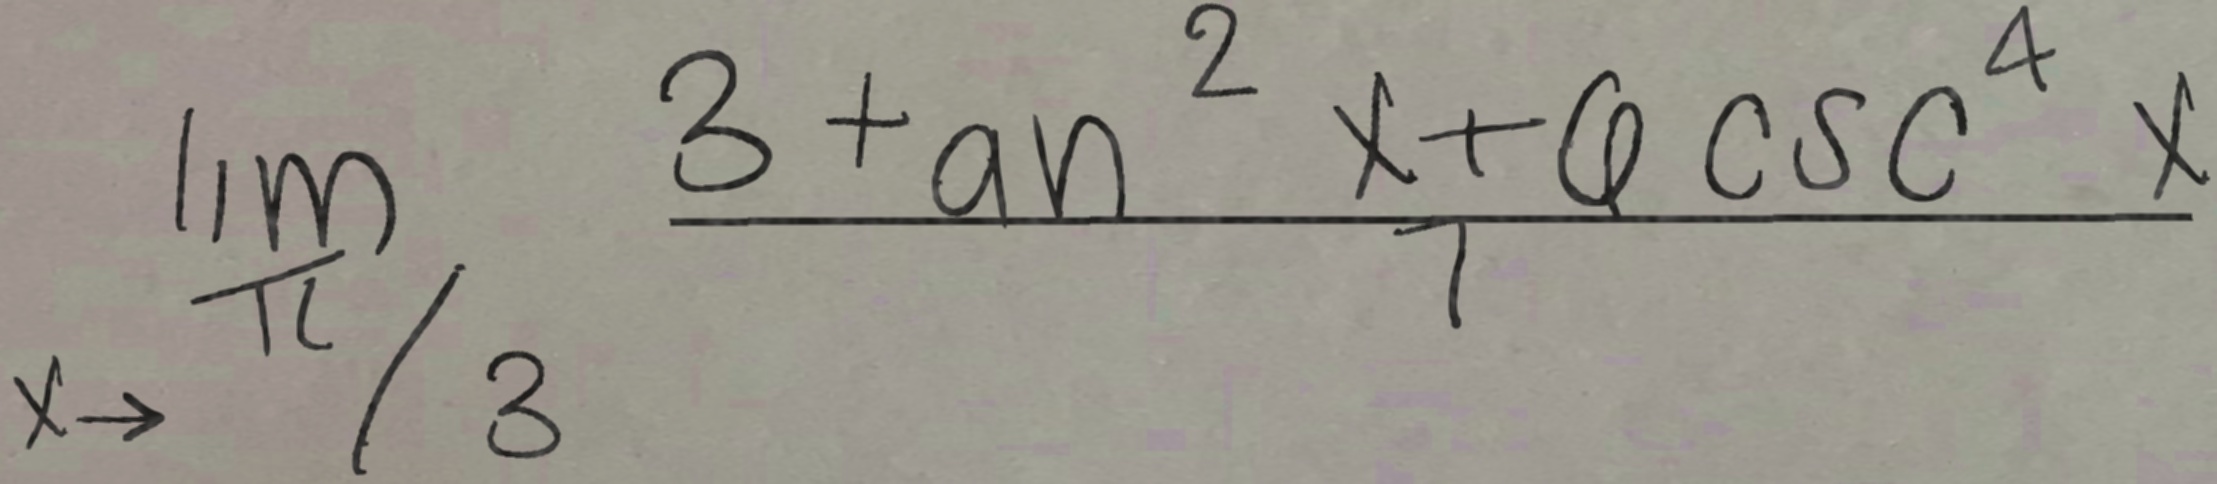 lim x→π/3 (3 tan² x + 6 csc⁴ x) / 7